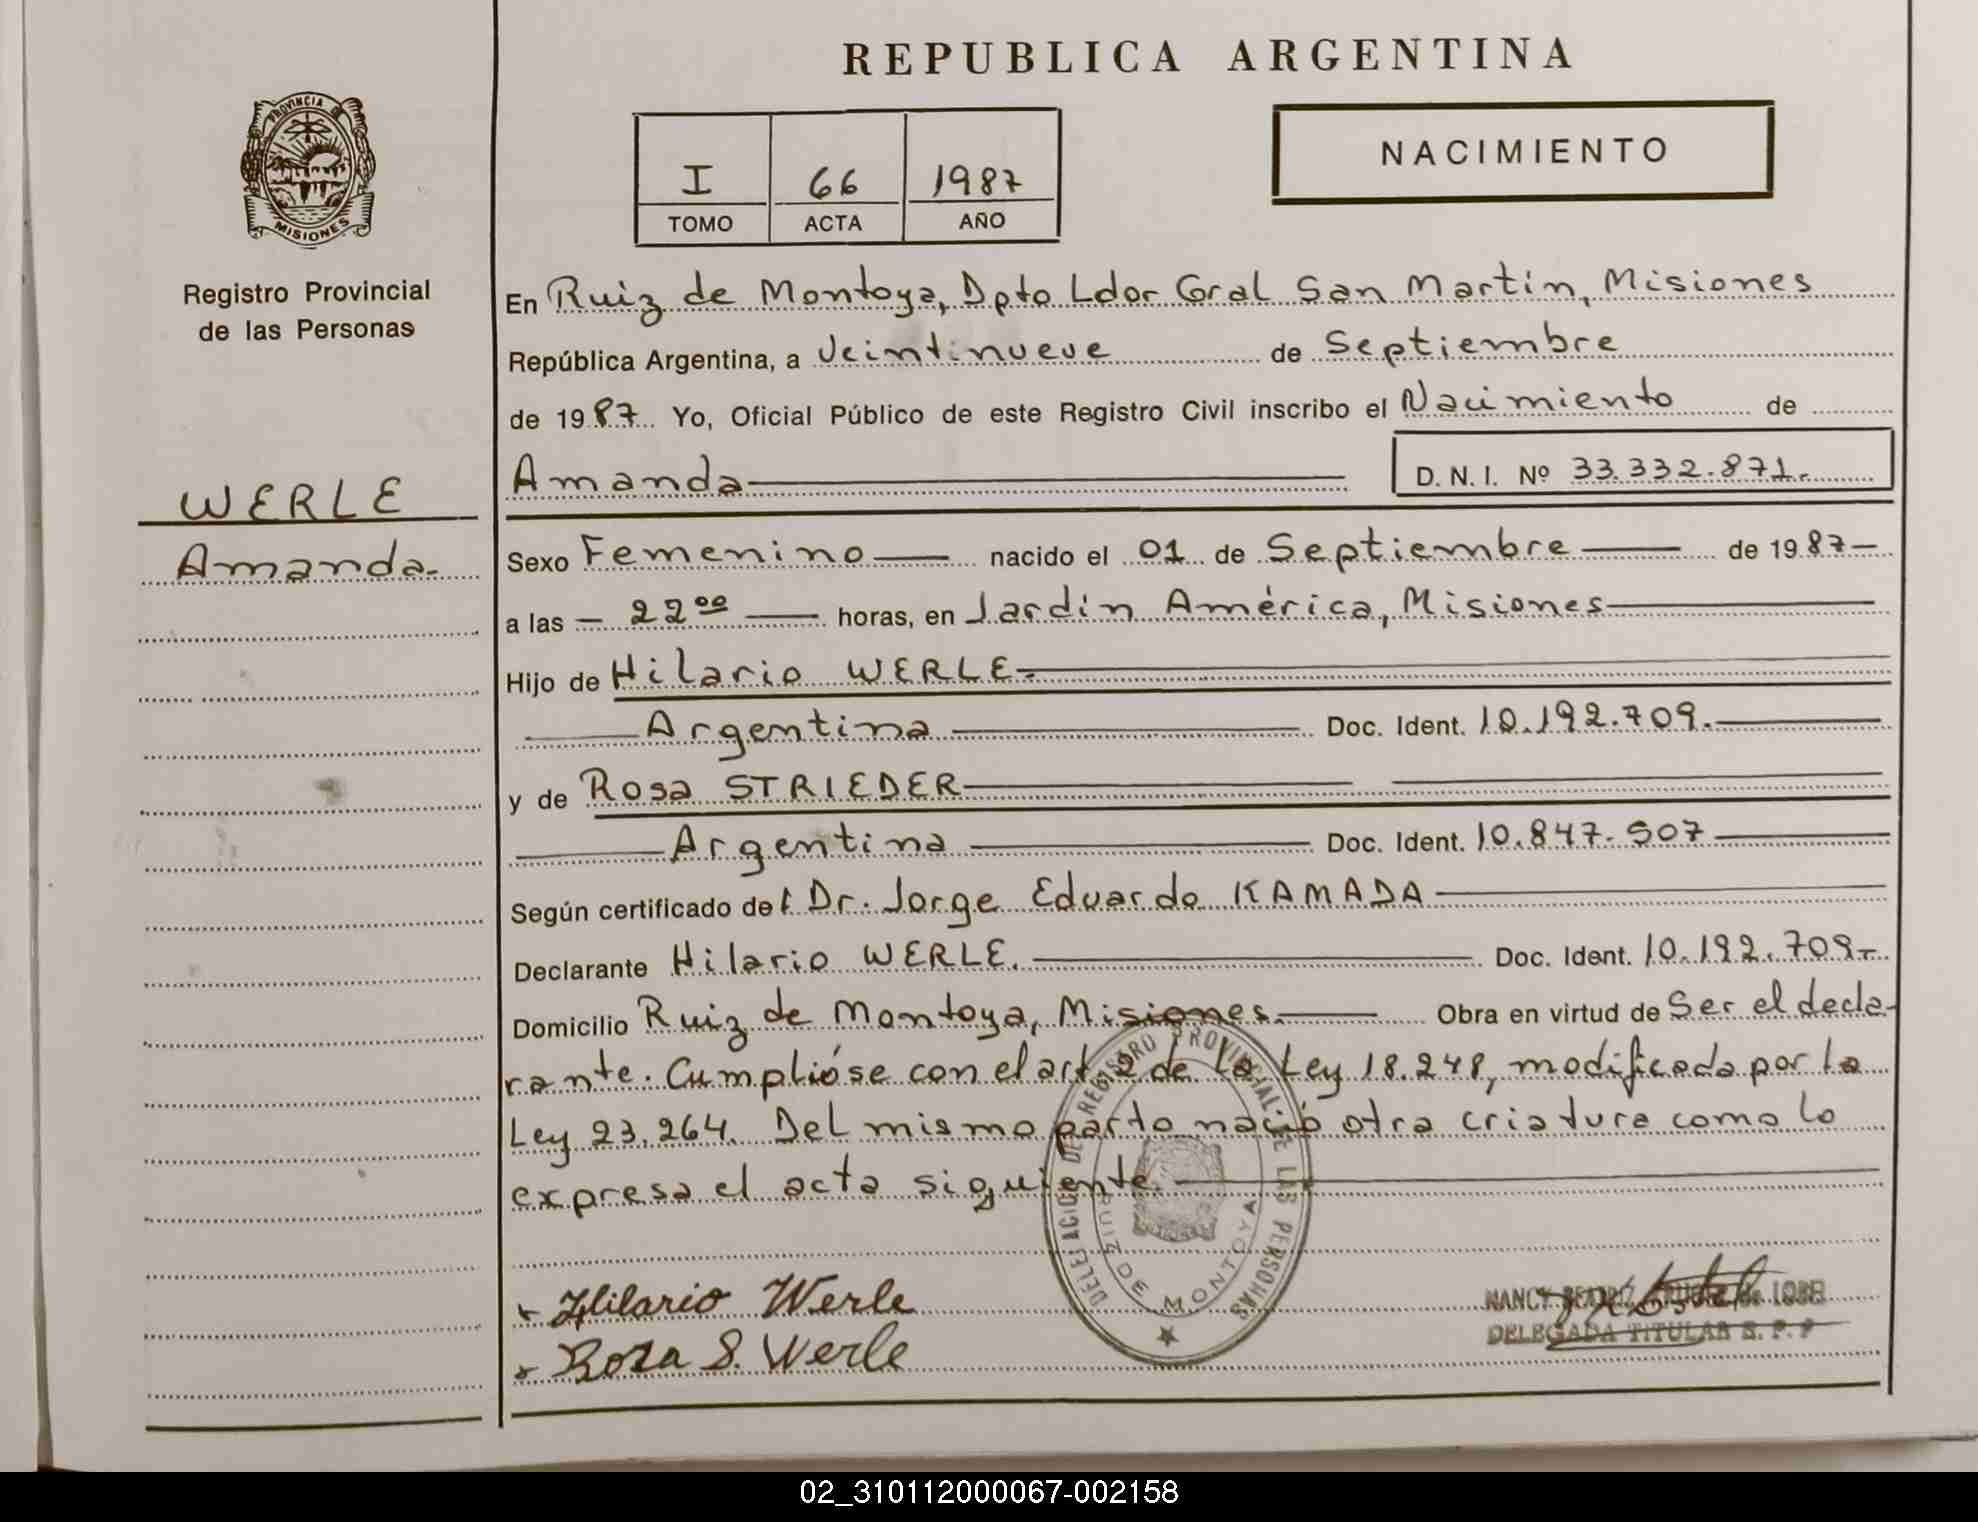 REPUBLICA ARGENTINA
PROVINCIA DE
MISIONES
Registro Provincial
de las Personas
WERLE
Amanda.-
I 66 1987
TOMO ACTA AÑO
NACIMIENTO
En Ruiz de Montoya, Dpto Ldor Gral San Martín, Misiones
República Argentina, a Veintinueve de Septiembre
de 1987. Yo, Oficial Público de este Registro Civil inscribo el Nacimiento de
Amanda D. N. I. Nº 33.332.871.-
Sexo Femenino nacido el 01 de Septiembre de 1987-
a las - 22 00 horas, en Jardín América, Misiones
Hijo de Hilario WERLE.-
Argentina Doc. Ident. 10.192.709.-
y de Rosa STRIEDER
Argentina Doc. Ident. 10.847.507
Según certificado del Dr. Jorge Eduardo KAMADA
Declarante Hilario WERLE. Doc. Ident. 10.192.709.-
Domicilio Ruiz de Montoya, Misiones. Obra en virtud de Ser el decla-
rante. Cumplióse con el art 2 de la Ley 18.248, modificada por la
Ley 23.264. Del mismo parto nació otra criatura como lo
expresa el acta siguiente.
DELEGACION DE REGISTRO PROVINCIAL DE LAS PERSONAS
RUIZ DE MONTOYA
Hilario Werle
Rosa S. Werle
NANCY BEATRIZ
DELEGADA TITULAR R. P. P
02_310112000067-002158